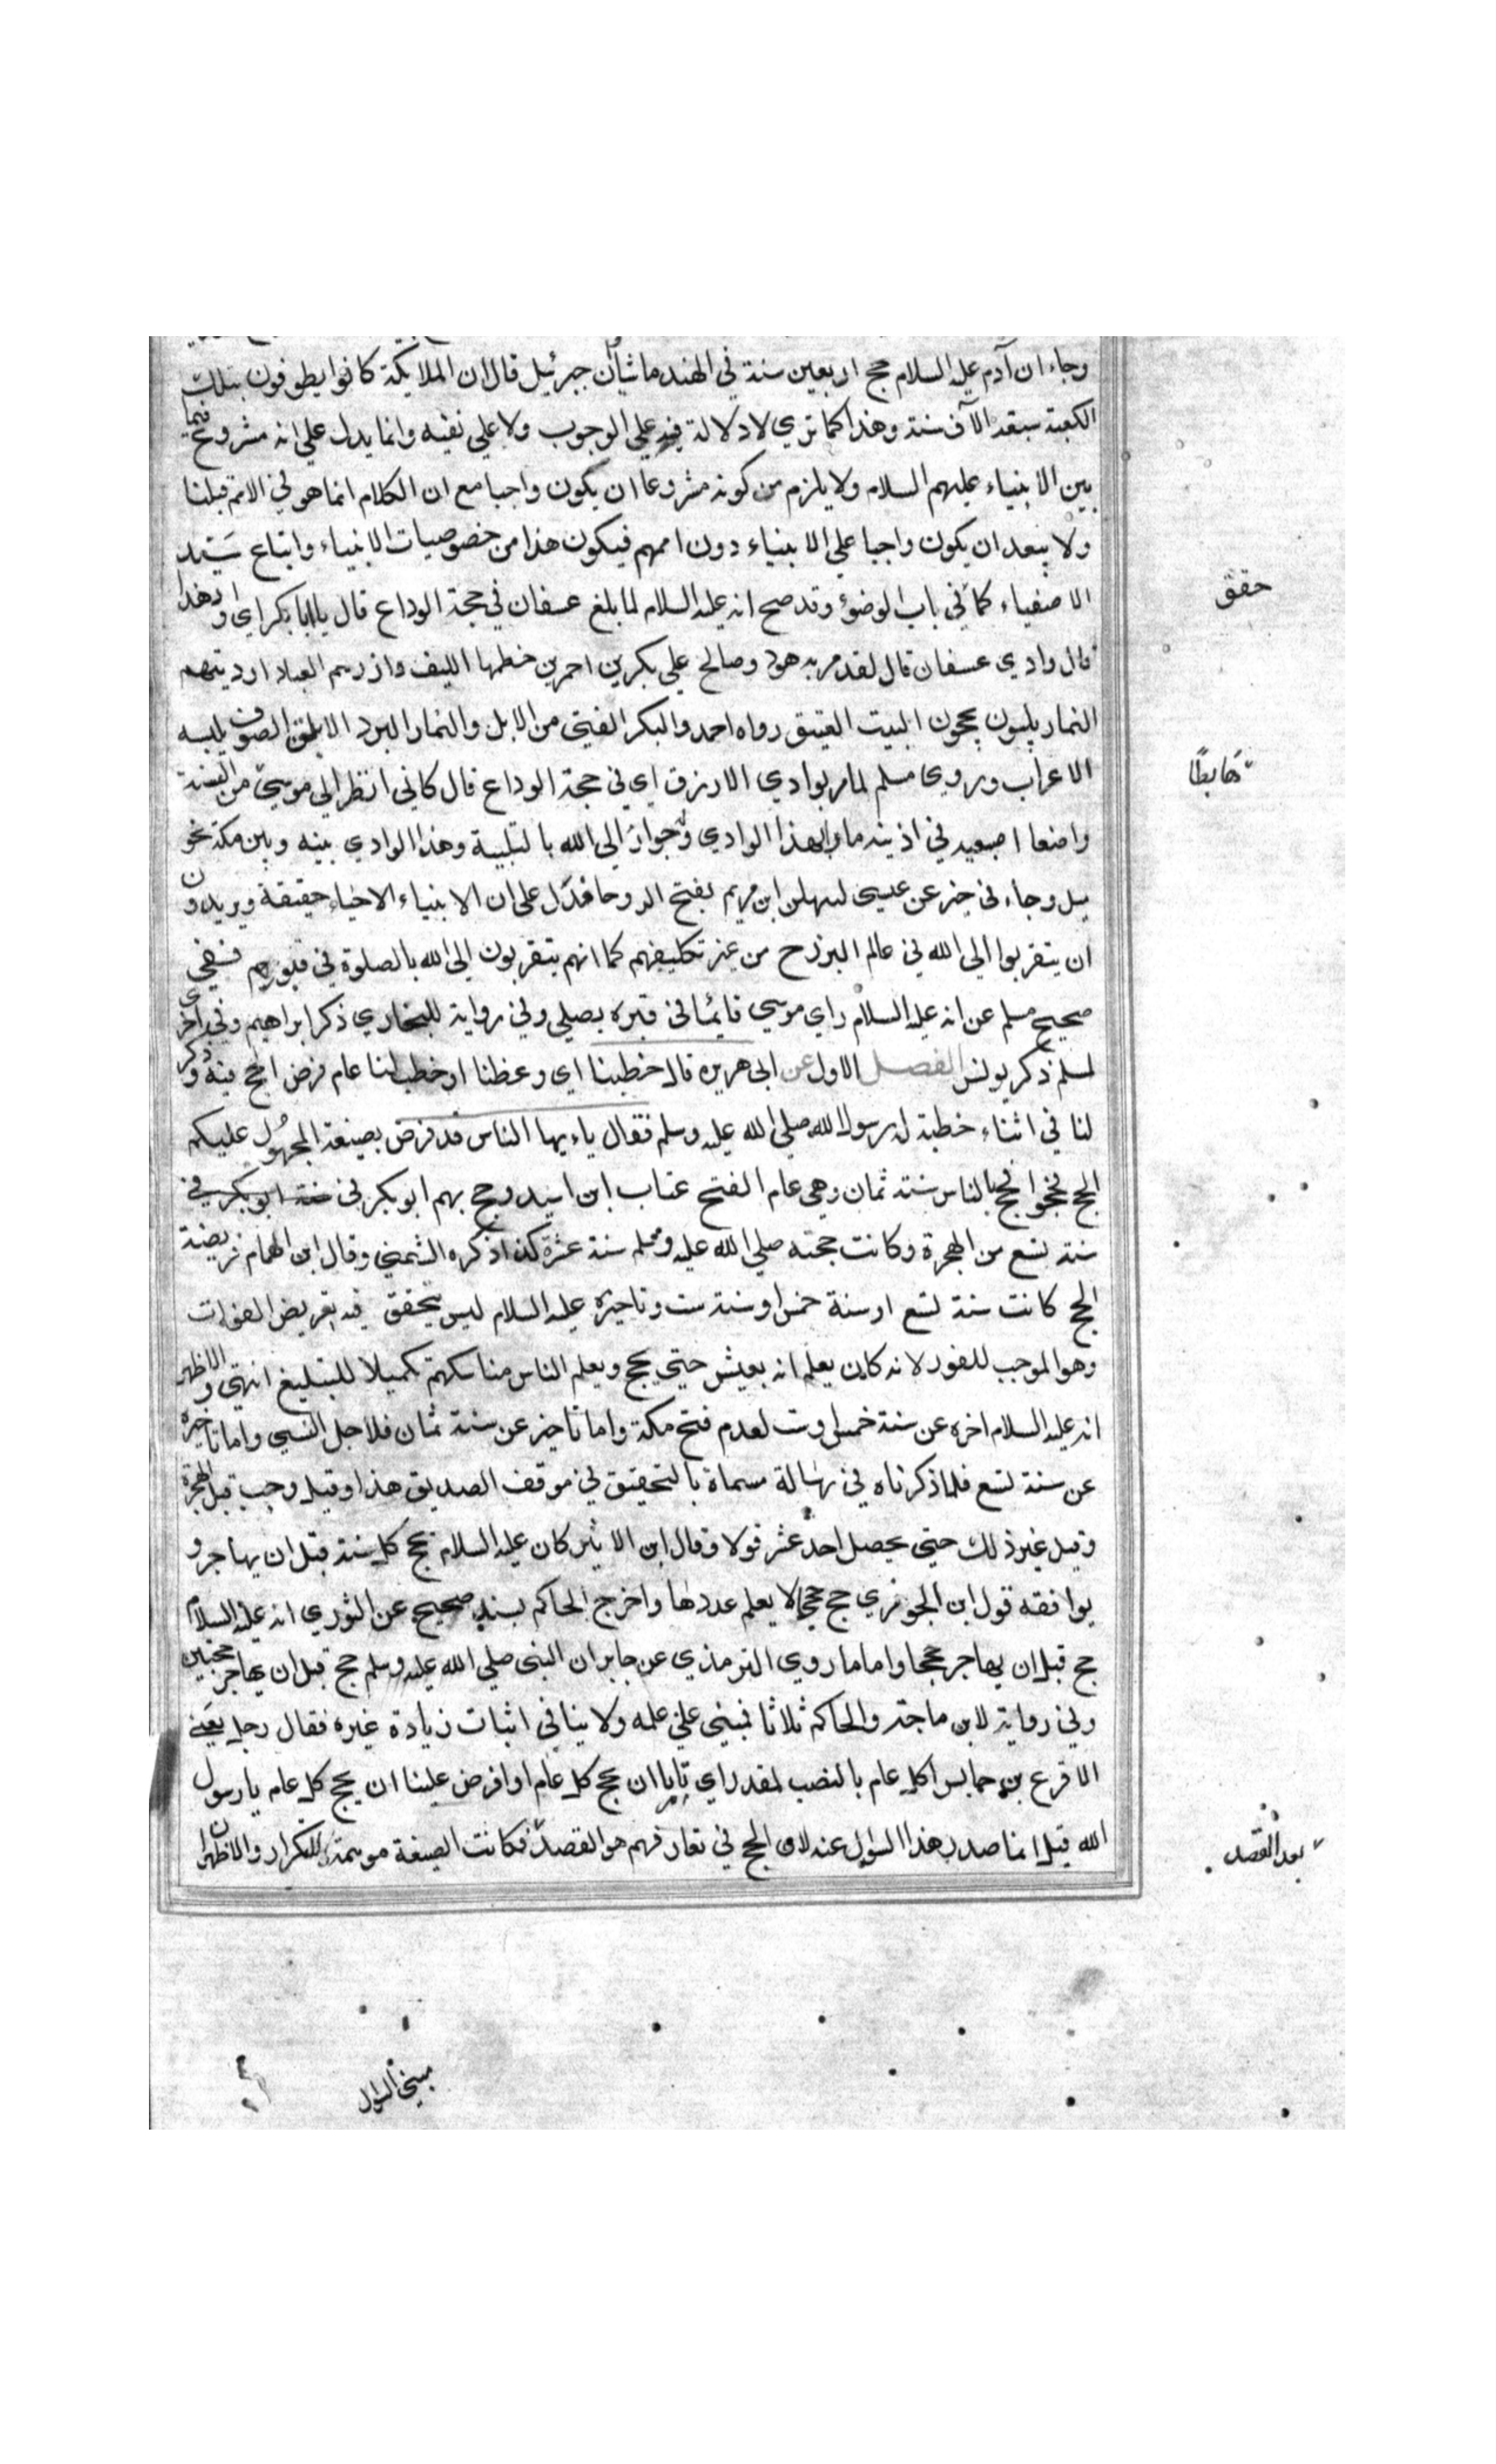 وجاء ان آدم عليه السلام حج اربعين سنة في الهند ماشيا وان جبرئيل قال ان الملايكة كانوا يطوفون بتلك
الكعبة سبعة الآف سنة وهذا كما تري لا دلالة فيه علي الوجوب ولا علي نفيه وانما يدل علي انه مشروع فيما
بين الانبياء عليهم السلام ولا يلزم من كونه مشروعا ان يكون واجبا مع ان الكلام انما هو في الامم قبلنا
ولا يبعد ان يكون واجبا علي الانبياء دون اممهم فيكون هذا من خصوصيات الانبياء واتباع سَيّد
الاصفياء كما في باب الوضوٴ وقد صح انه عليه السلام لما بلغ عسفان في حجة الوداع قال يا ابا بكر اي واد هذا
قال وادي عسفان قال لقد مر به هود وصالح علي بكرين احمرين خطمها الليف وازرهم العباء وارديتهم
النمار يلبون يحجون البيت العتيق رواه احمد والبكر الفتي من الابل والنمار البرد الابلق الصوف يلبسه
الاعراب وروي مسلم لما مر بوادي الازرق اي في حجة الوداع قال كاني انظر الي موسي من الثنية
هَابطًا
واضعا اصبعيه في اذنيه مارا بهذا الوادي وله جوار الي الله بالتلبية وهذا الوادي بينه وبين مكة نحو
ميل وجاء في خبر عن عيسي ليهلن ابن مريم بفتح الروحا فدل علي ان الانبياء الاحياء حقيقة ويريدون
ان يتقربوا الي الله في عالم البرزخ من غير تكليفهم كما انهم يتقربون الي الله بالصلوة في قبورهم ففي
صحيح مسلم عن انه عليه السلام راي موسي قايمًا في قبره يصلي وفي رواية للبخاري ذكر ابراهيم وفي اخري
لمسلم ذكر يونس الفصل الاول عن ابي هريره قال خطبنا اي وعظنا او خطب لنا عام فرض الحج فيه وذكر
لنا في اثناء خطبة له رسول الله صلي الله عليه وسلم فقال ياءيها الناس قد فرض بصيغة المجهُول عليكم
الحج فحجوا حج بالناس سنة ثمان وهي عام الفتح عتاب ابن اسيد وحج بهم ابو بكر في سنة ابو بكر في
سنة تسع من الهجرة وكانت حجته صلي الله عليه وسلم سنة عشرة كذا ذكره الشمني وقال ابن الهمام فريضة
الحج كانت سنة تسع او سنة خمس او سنة ست وتاخيره عليه السلام ليس يتحقق فيه تعريض الفوات
وهو الموجب للفور لانه كان يعلم انه يعيش حتي يحج ويعلم الناس مناسكهم تكميلا للتبليغ انتهي والاظهر
انه عليه السلام اخره عن سنة خمس او ست لعدم فتح مكة واما تاخيره عن سنة ثمان فلاجل النسي واما تاخيره
عن سنة تسع فلما ذكرناه في رسالة مسماة بالتحقيق في موقف الصديق هذا وقيل وجب قبل الهجرة
وقيل غير ذلك حتي تحصل احد عشر قولا وقال ابن الاثير كان عليه السلام يحج كل سنة قبل ان يهاجر و
يوافقه قول ابن الجوزي حج حججا لا يعلم عددها واخرج الحاكم بسند صحيح عن الثوري انه عليه السلام
حج قبل ان يهاجر حججا واما ما روي الترمذي عن جابر ان النبي صلي الله عليه وسلم حج قبل ان يهاجر حجتين
وفي رواية لابن ماجة والحاكم ثلاثا فمبني علي علمه ولا ينافي اثبات زيادة غيره فقال رجل يعني
الاقرع بن حابس اكل عام بالنصب لمقدر اي تامرنا ان نحج كل عام او افرض علينا ان نحج كل عام يا رسول
الله قيل انما صدر هذا السؤال عنه لان الحج في تعارفهم هو القصد فكانت الصيغة موهمة للتكرار والاظهر ان
بعد القصد
مبني السؤال